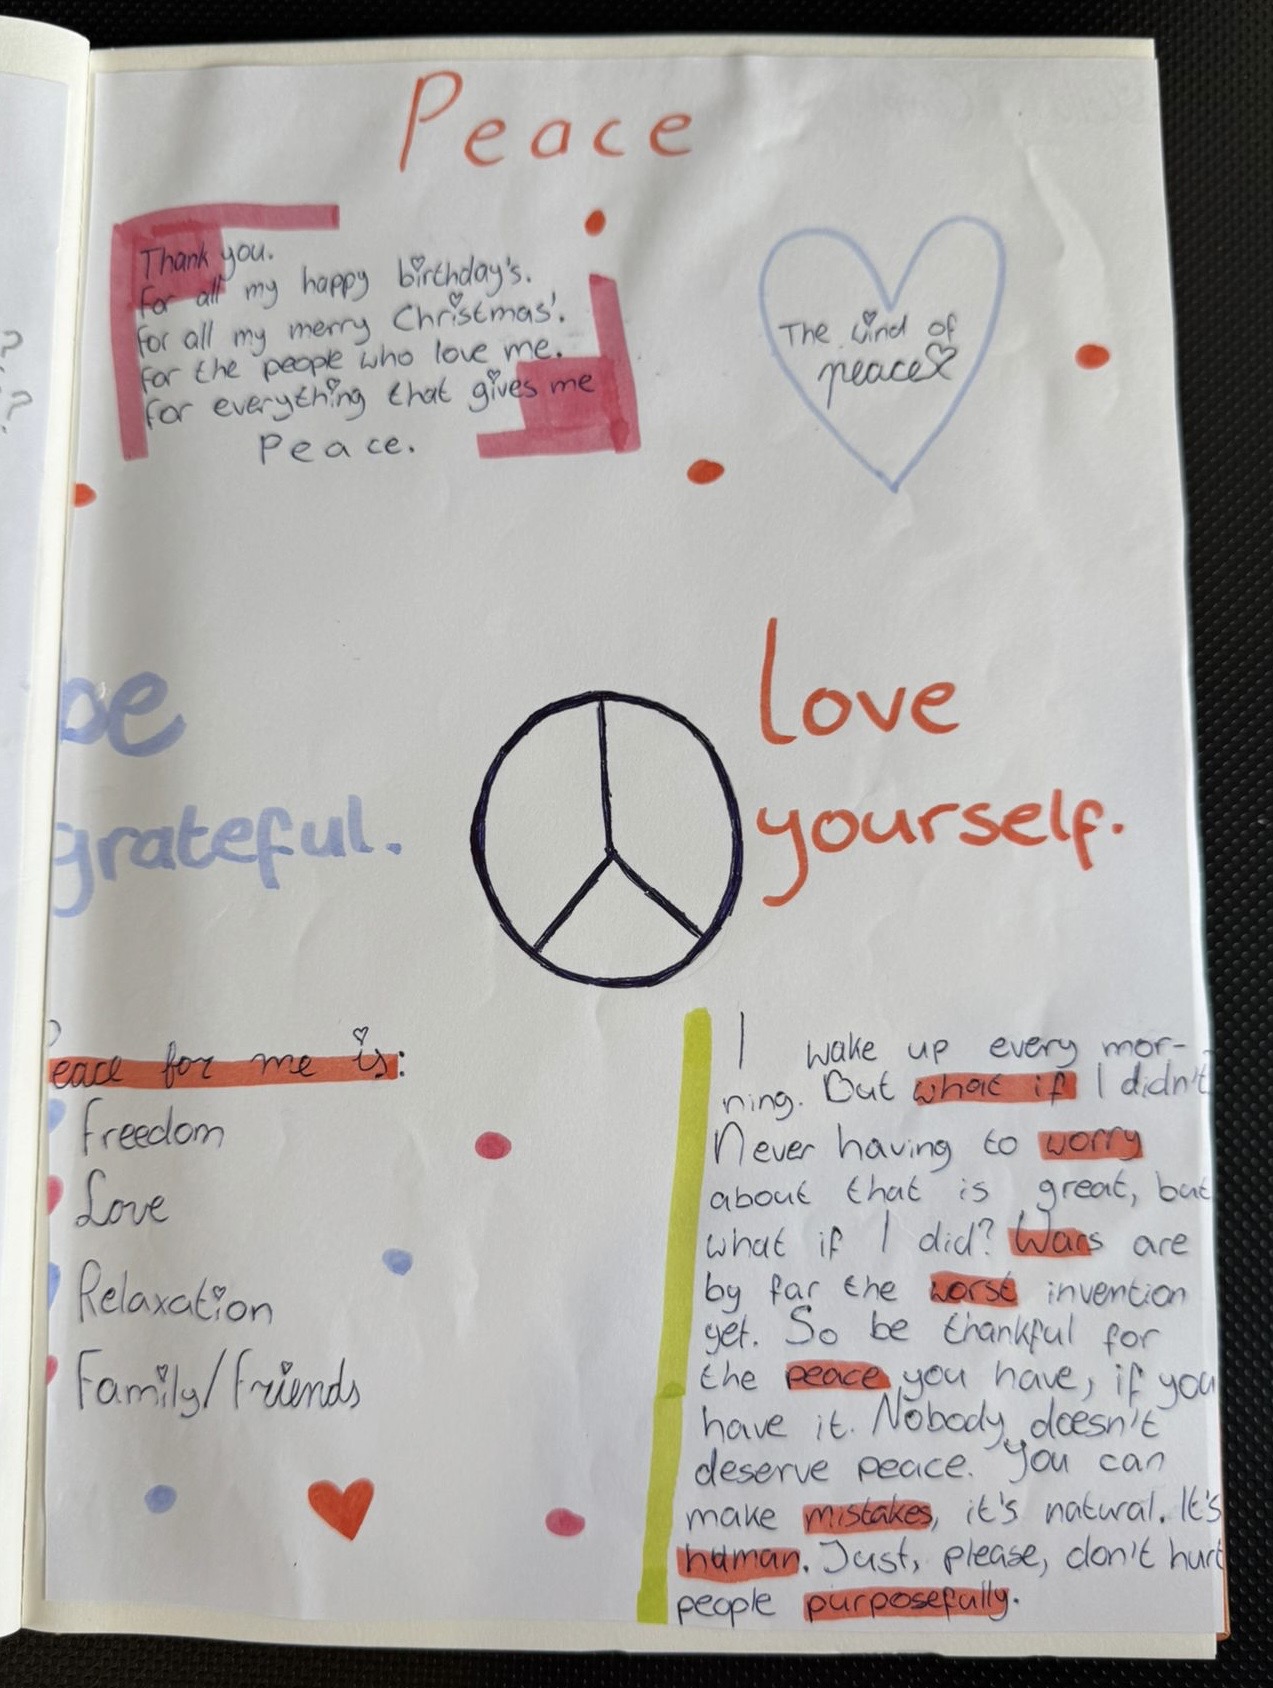 Peace
Thank you.
For all my happy birthday's.
For all my merry Christmas'.
For the people who love me.
For everything that gives me
Peace.
The wind of
peace
be
grateful.
love
yourself.
Peace for me is:
Freedom
Love
Relaxation
Family/Friends
I wake up every mor-
ning. But what if I didn't?
Never having to worry
about that is great, but
what if I did? Wars are
by far the worst invention
yet. So be thankful for
the peace you have, if you
have it. Nobody doesn't
deserve peace. You can
make mistakes, it's natural. It's
human. Just, please, don't hurt
people purposefully.